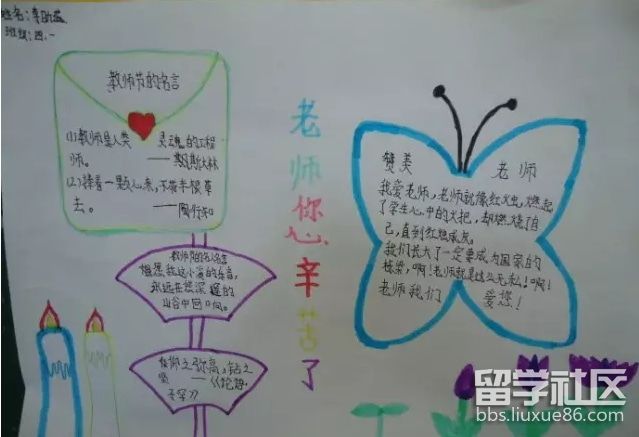 姓名:李
班级:四.一
教师节的名言
(1)教师是人类 灵魂的工程
师。 ——斯大林
(2)捧着一颗心来,不带半根草
去。 ——陶行知
教师节的名人名言
我这小溪的乐音,
永远在您深邃的
山谷中回响。
仰之弥高,钻之
弥坚 ——《论语·
子罕》
老师您辛苦了
赞美 老师
我爱老师,老师就像红火虫,燃起
了学生心中的火把,却燃烧了自
己,直到红烛成灰。
我们长大了一定要成为国家的
栋梁,啊!老师就是这么无私!啊!
老师我们 爱您!
留学社区
bbs.liuxue86.com